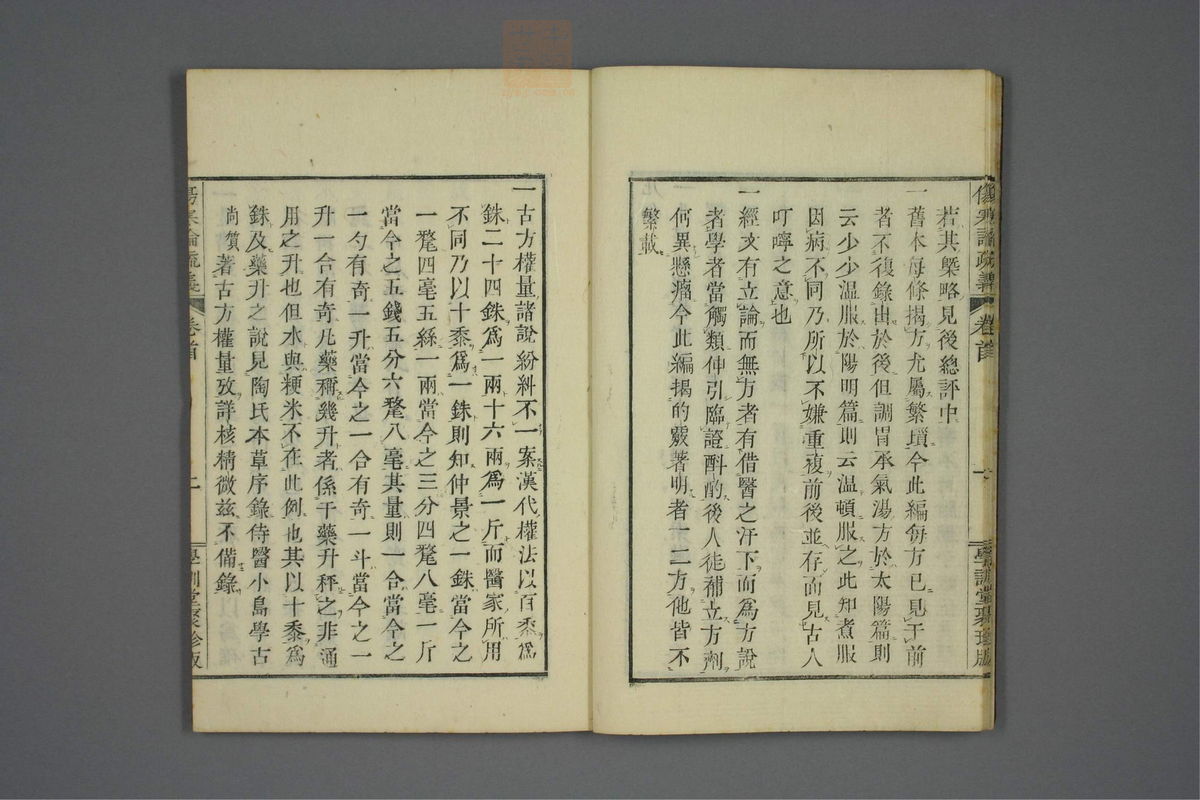 傷寒論疏義 卷首 學訓堂聚珍版
若其槩略見後總評中
一舊本每條揭方尤屬繁瑣今此編每方已見于前
者不復錄由於後但調胃承氣湯方於太陽篇則
云少少温服於陽明篇則云温頓服之此知煮服
因病不同乃所以不嫌重複前後並存而見古人
叮嚀之意也
一經文有立論而無方者有借醫之汗下而為方說
者學者當觸類伸引臨證斟酌後人徒補立方劑
何異懸瘤今此編揭的竅著明者一二方他皆不
繁載
一古方權量諸說紛糾不一案漢代權法以百黍爲
銖二十四銖爲一兩十六兩爲一斤而醫家所用
不同乃以十黍爲一銖則知仲景之一銖當今之
一氂四毫五絲一兩當今之三分四氂八毫一斤
當今之五錢五分六氂八毫其量則一合當今之
一勺有奇一升當今之一合有奇一斗當今之一
升一合有奇凡藥稱幾升者係于藥升秤之非通
用之升也但水與粳米不在此例也其以十黍爲
銖及藥升之說見陶氏本草序錄侍醫小島學古
尚質著古方權量攷詳核精微茲不備錄
傷寒論疏義 卷首 二 學訓堂聚珍版